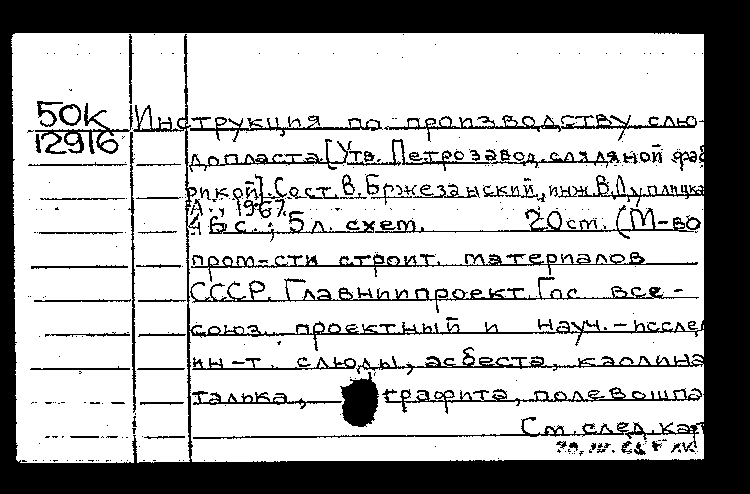 50К Инструкция по производству слю-
12916 допласта [Утв. Петрозавод. слюдяной фаб
рикой]. Сост. В. Бржезанский, инж. В. Дуплицка
Л., 1967.
46 с.; 5 л. схем. 20 ст. (М-во
пром-сти строит. материалов
СССР. Главниипроект. Гос. все-
союз. проектный и науч.-исслед
ин-т. слюды, асбеста, каолина
талька, графита, полевошпа
См. след. карт